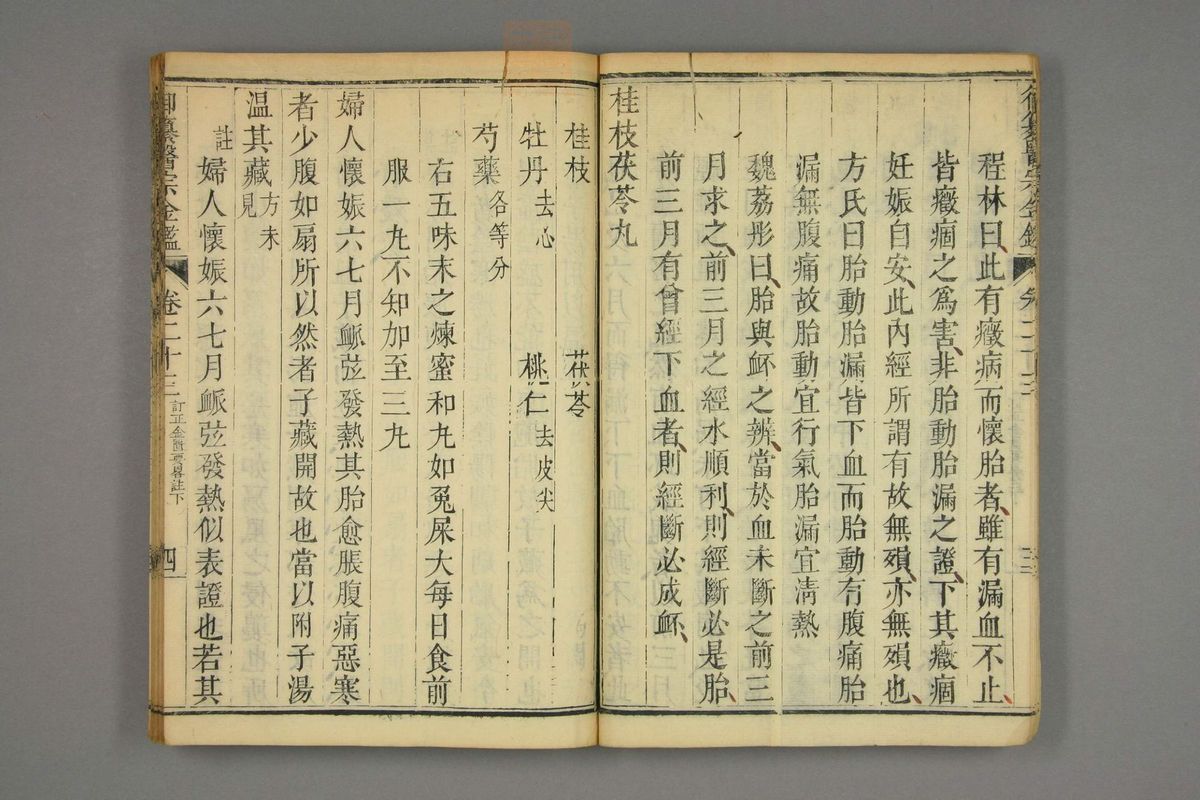 程林曰此有癥病而懷胎者雖有漏血不止
皆癥痼之為害非胎動胎漏之證下其癥痼
妊娠自安此內經所謂有故無殞亦無殞也
方氏曰胎動胎漏皆下血而胎動有腹痛胎
漏無腹痛故胎動宜行氣胎漏宜淸熱
魏荔彤曰胎與衃之辨當於血未斷之前三
月求之前三月之經水順利則經斷必是胎
前三月有曾經下血者則經斷必成衃
桂枝茯苓丸
桂枝 茯苓
牡丹去心 桃仁去皮尖
芍藥各等分
右五味末之煉蜜和丸如兔屎大每日食前
服一丸不知加至三丸
婦人懷娠六七月脈弦發熱其胎愈脹腹痛惡寒
者少腹如扇所以然者子藏開故也當以附子湯
温其藏方未見
註婦人懷娠六七月脈弦發熱似表證也若其
御纂醫宗金鑑 卷二十三 訂正金匱要畧註下 四